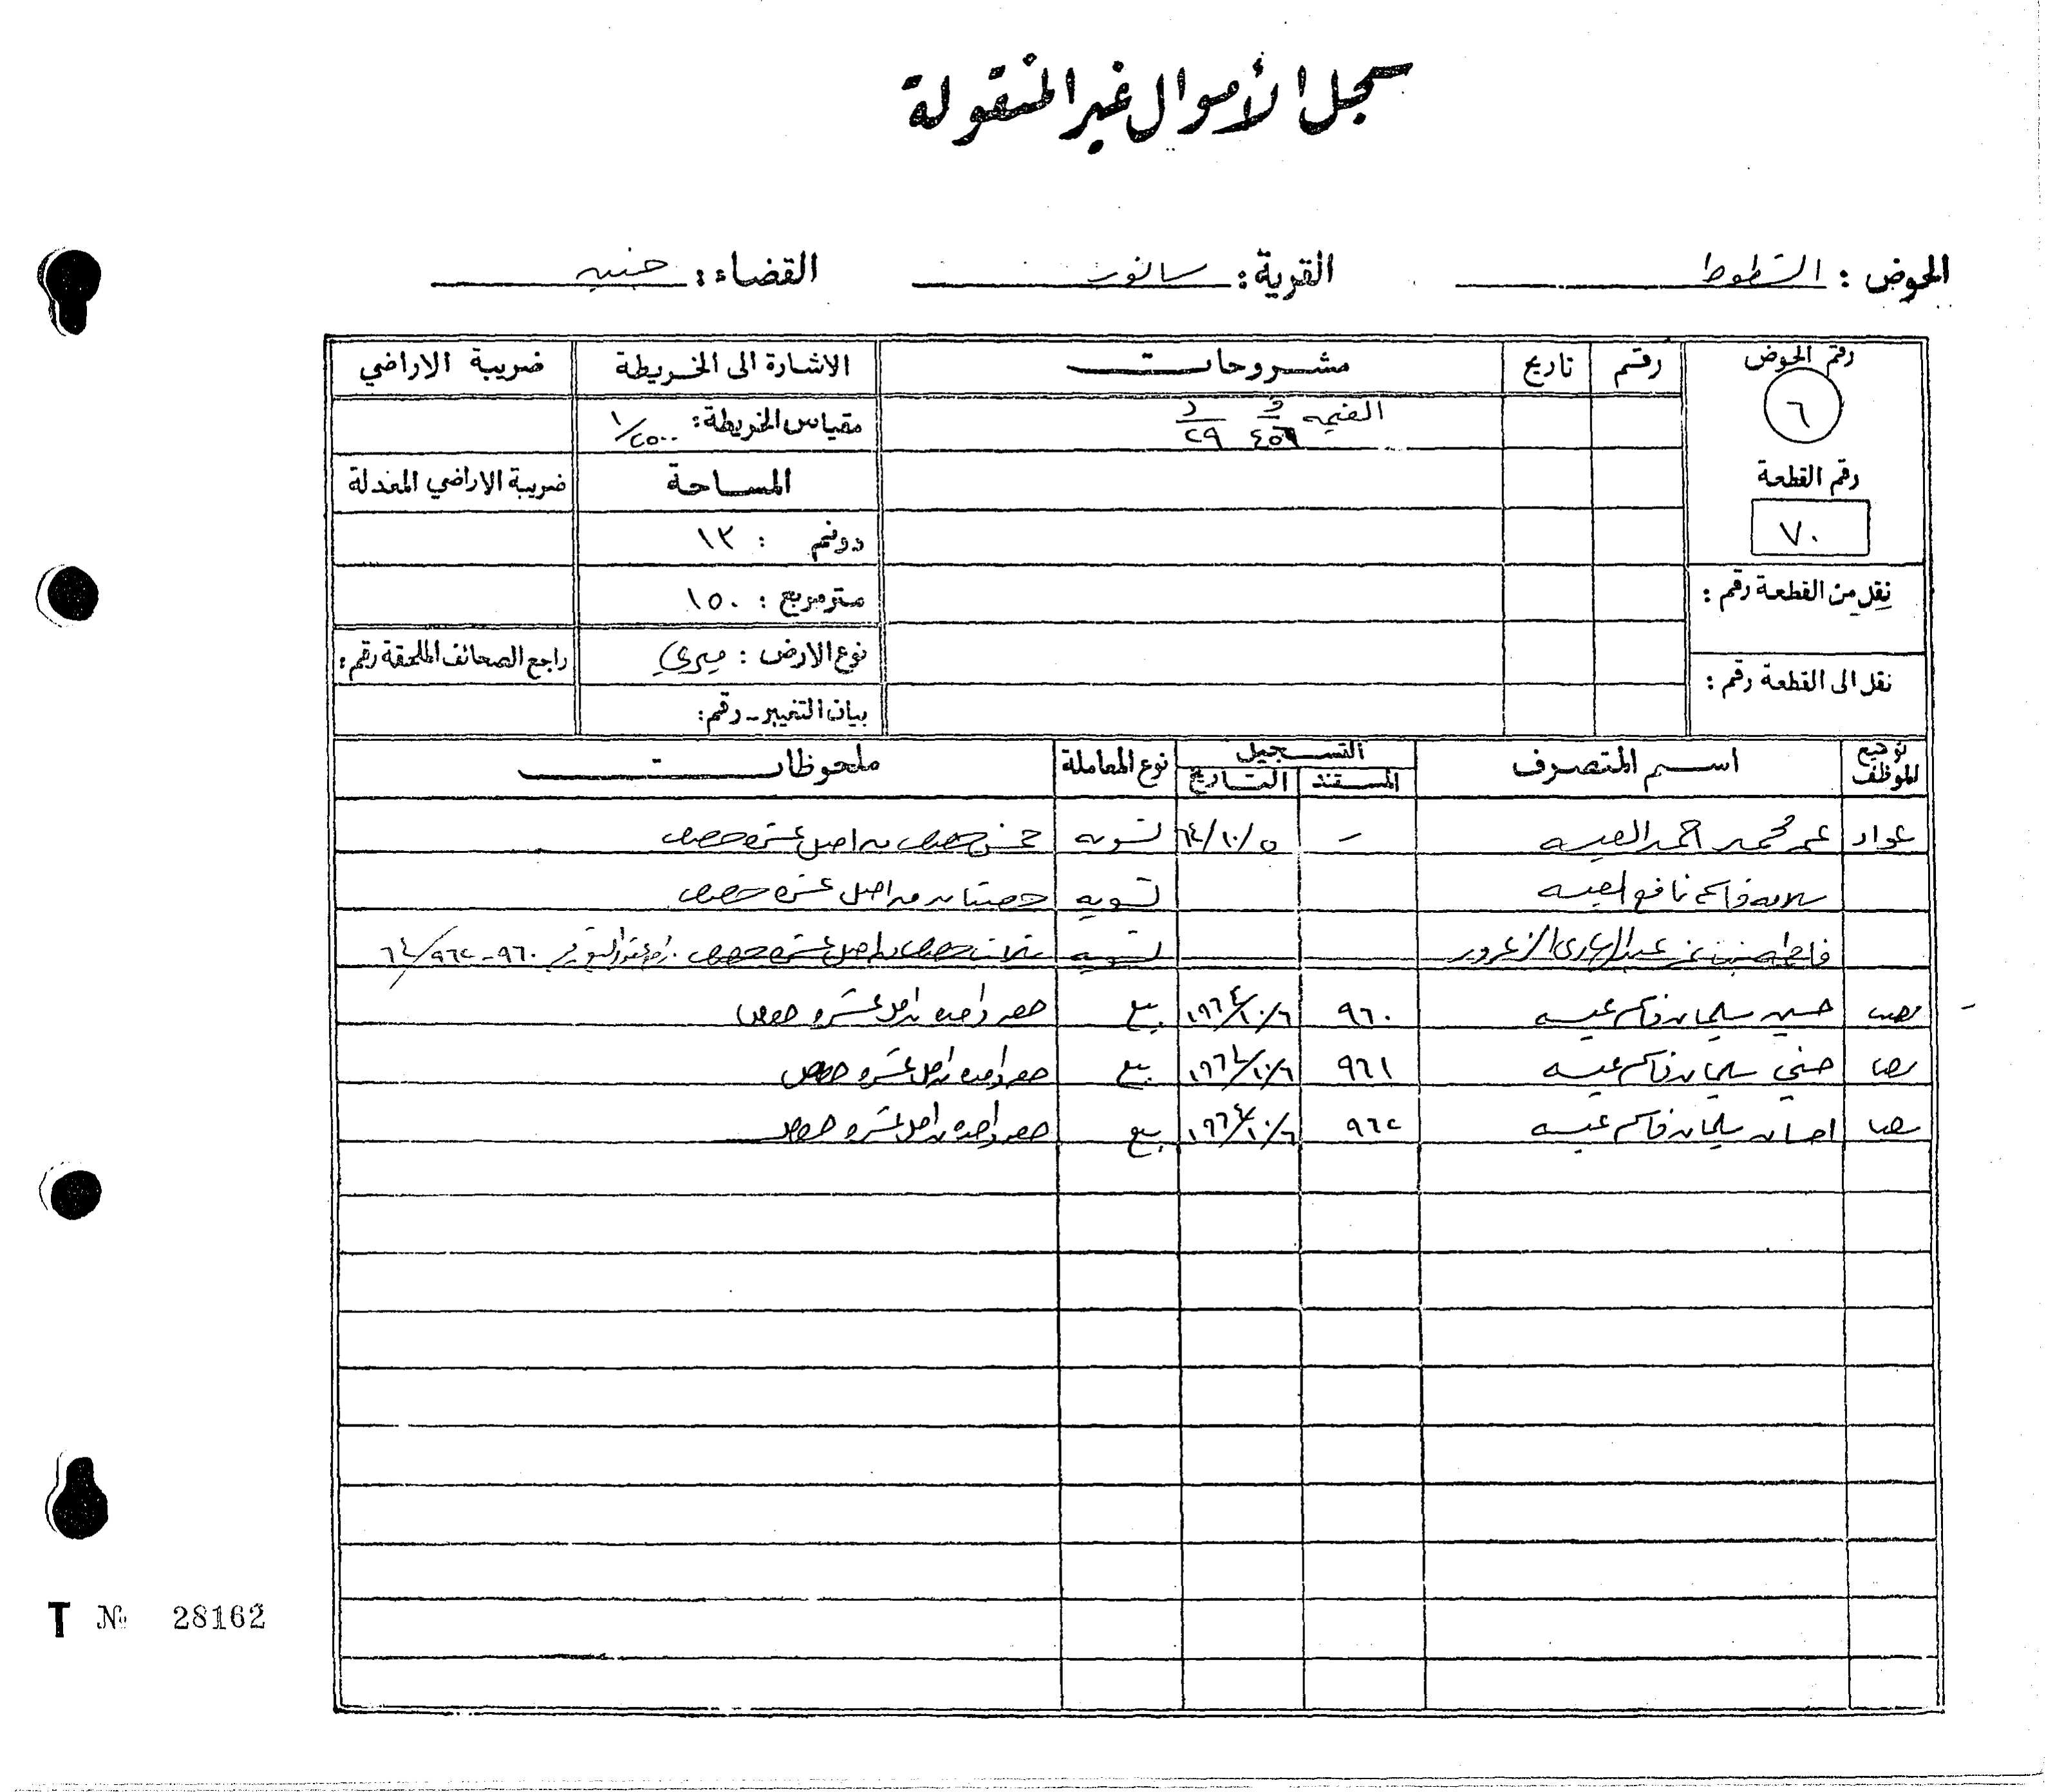 سجل الأموال غير المنقولة
الحوض : الشطوط القرية : سانور القضاء : جنين
رقم الحوض رقم تاريخ مشروحات الاشارة الى الخريطة ضريبة الاراضي
٦ القيمه و ٤٥٦ د ٢٩ مقياس الخريطة : ١/٢٥٠٠
رقم القطعة المساحة ضريبة الاراضي المعدلة
٧٠ دونم : ١٣
نقل من القطعة رقم : متر مربع : ١٥٠
نوع الارض : ميري راجع الصحائف الملحقة رقم :
نقل الى القطعة رقم : بيان التغيير - رقم :
توقيع الموظف اسم المتصرف التسجيل نوع المعاملة ملحوظات
المستند التاريخ
عواد عمر محمد احمد العيسه - ٥/١٠/٦٤ تسويه خمس حصص من اصل عشرة حصص
قاسم نافع العيسه تسويه حصتان من اصل عشرة حصص
فاطمه عبد الهادي الزعرور تسويه ثلاث حصص من اصل عشرة حصص ٩٦٠-٩٦٢/٦٤
حسين سليمان قاسم عيسه ٩٦٠ ٦/١٠/١٩٦٤ بيع حصه واحده من اصل عشرة حصص
حسني سليمان قاسم عيسه ٩٦١ ٦/١٠/١٩٦٤ بيع حصه واحده من اصل عشرة حصص
احسان سليمان قاسم عيسه ٩٦٢ ٦/١٠/١٩٦٤ بيع حصه واحده من اصل عشرة حصص
T № 28162